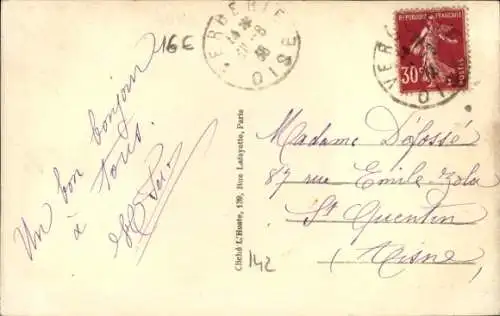 16E
VERBERIE
38
OISE
REPUBLIQUE FRANCAISE
30c
POSTES
Un bon bonjour
à tous.
Cliché L'Hoste, 139, Rue Lafayette, Paris
Madame Défossé
87 rue Emile-Zola
St Quentin
(Aisne)
142